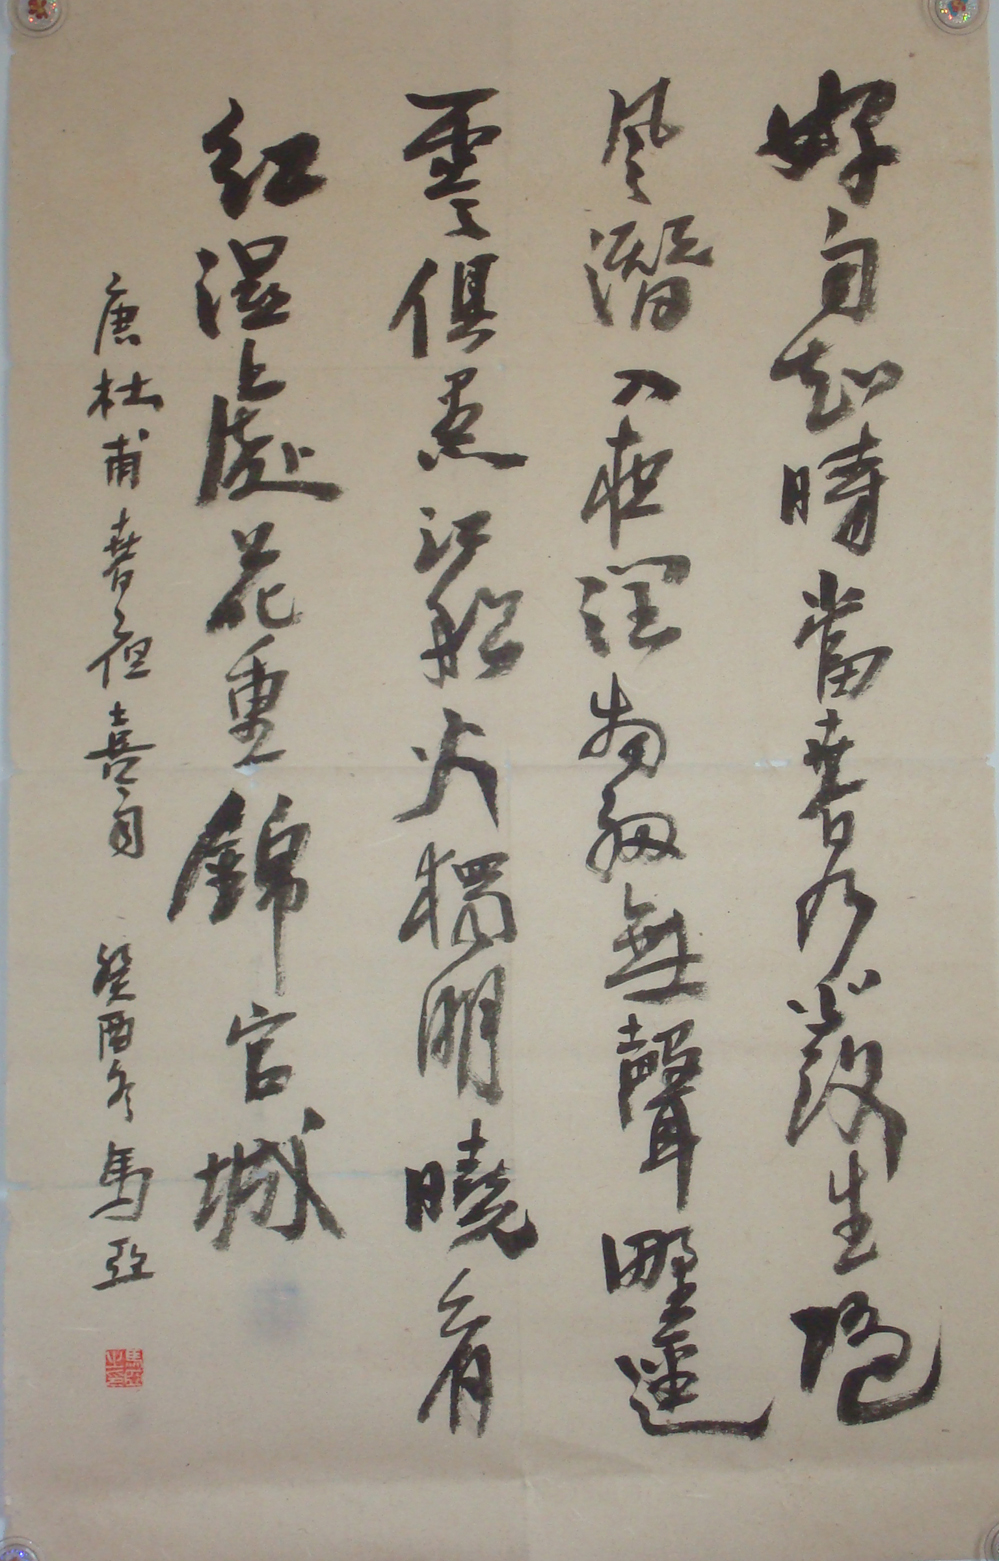 好雨知時當春乃發生隨
風潛入夜潤物細無聲野徑
雲俱黑江船火獨明曉看
紅濕處花重錦官城
唐杜甫春夜喜雨 癸酉冬 馬亞
馬亞之印